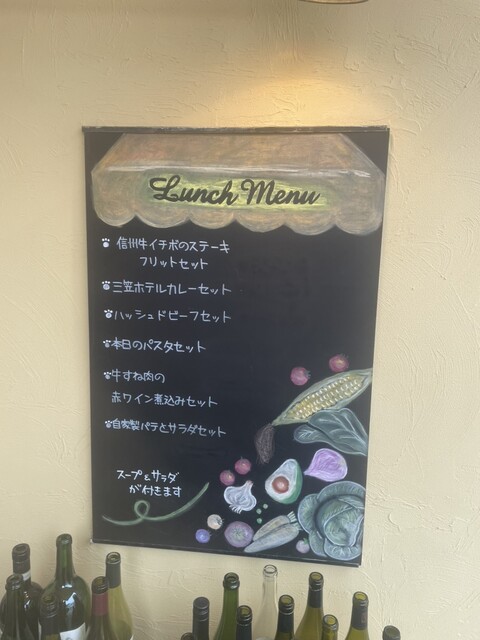 Lunch Menu
信州牛イチボのステーキ
フリットセット
三笠ホテルカレーセット
ハッシュドビーフセット
本日のパスタセット
牛すね肉の
赤ワイン煮込みセット
自家製パテとサラダセット
スープ&サラダ
が付きます